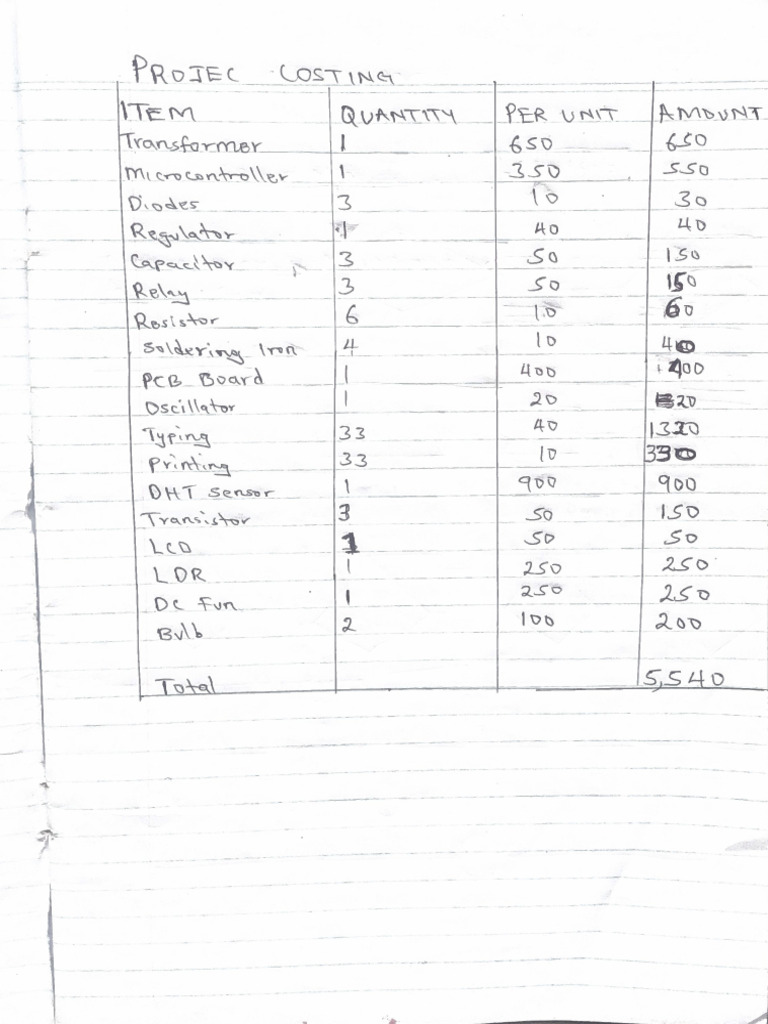 PROJEC COSTING
ITEM QUANTITY PER UNIT AMOUNT
Transformer 1 650 650
Microcontroller 1 350 550
Diodes 3 10 30
Regulator 1 40 40
Capacitor 3 50 150
Relay 3 50 150
Resistor 6 10 60
Soldering Iron 4 10 40
PCB Board 1 400 400
Oscillator 1 20 20
Typing 33 40 1320
Printing 33 10 330
DHT Sensor 1 900 900
Transistor 3 50 150
LCD 1 50 50
LDR 1 250 250
DC Fun 1 250 250
Bulb 2 100 200
Total 5,540